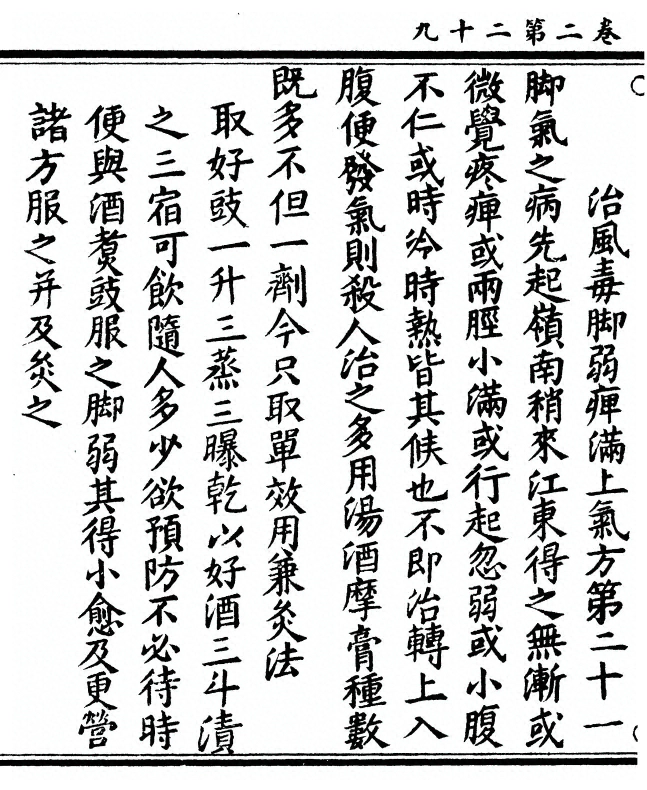 卷二第二十九
治風毒脚弱痺滿上氣方第二十一
脚氣之病先起嶺南稍來江東得之無漸或
微覺疼痺或兩脛小滿或行起忽弱或小腹
不仁或時冷時熱皆其候也不即治轉上入
腹便發氣則殺人治之多用湯酒摩膏種數
既多不但一劑今只取單效用兼灸法
取好豉一升三蒸三曝乾以好酒三斗漬
之三宿可飲隨人多少欲預防不必待時
便與酒煑豉服之脚弱其得小愈及更營
諸方服之并及灸之